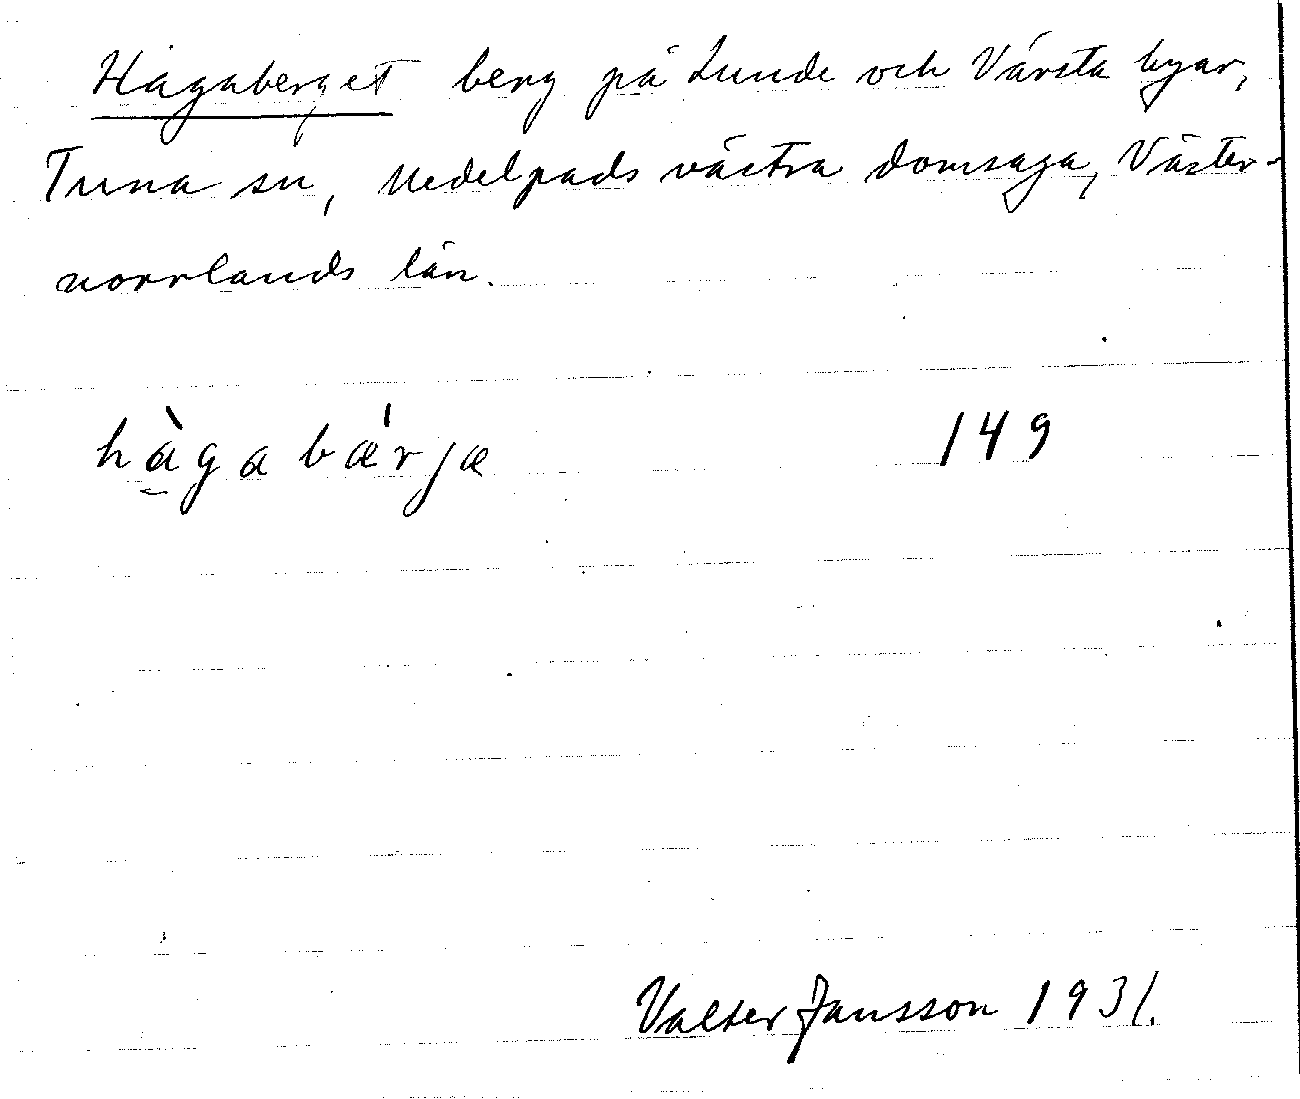 Hagaberget berg på Lunde och Vårsta byar,
Tuna sn, Medelpads västra domsaga, Väster-
norrlands län.
hàgabærjæ 149
Valter Jansson 1931.